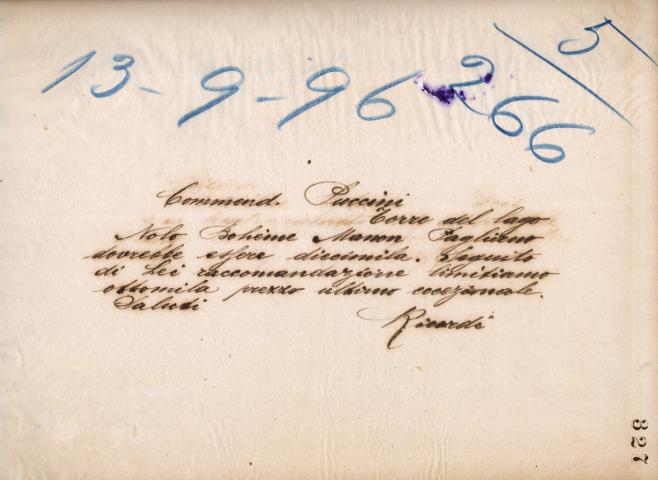 13-9-96 266/5
Commend. Puccini
Torre del lago
Nolo Bohème Manon Pagliano
dovrebbe essere diecimila. Seguito
di Lei raccomandazione limitiamo
ottomila prezzo ultimo eccezionale.
Saluti
Ricordi
327